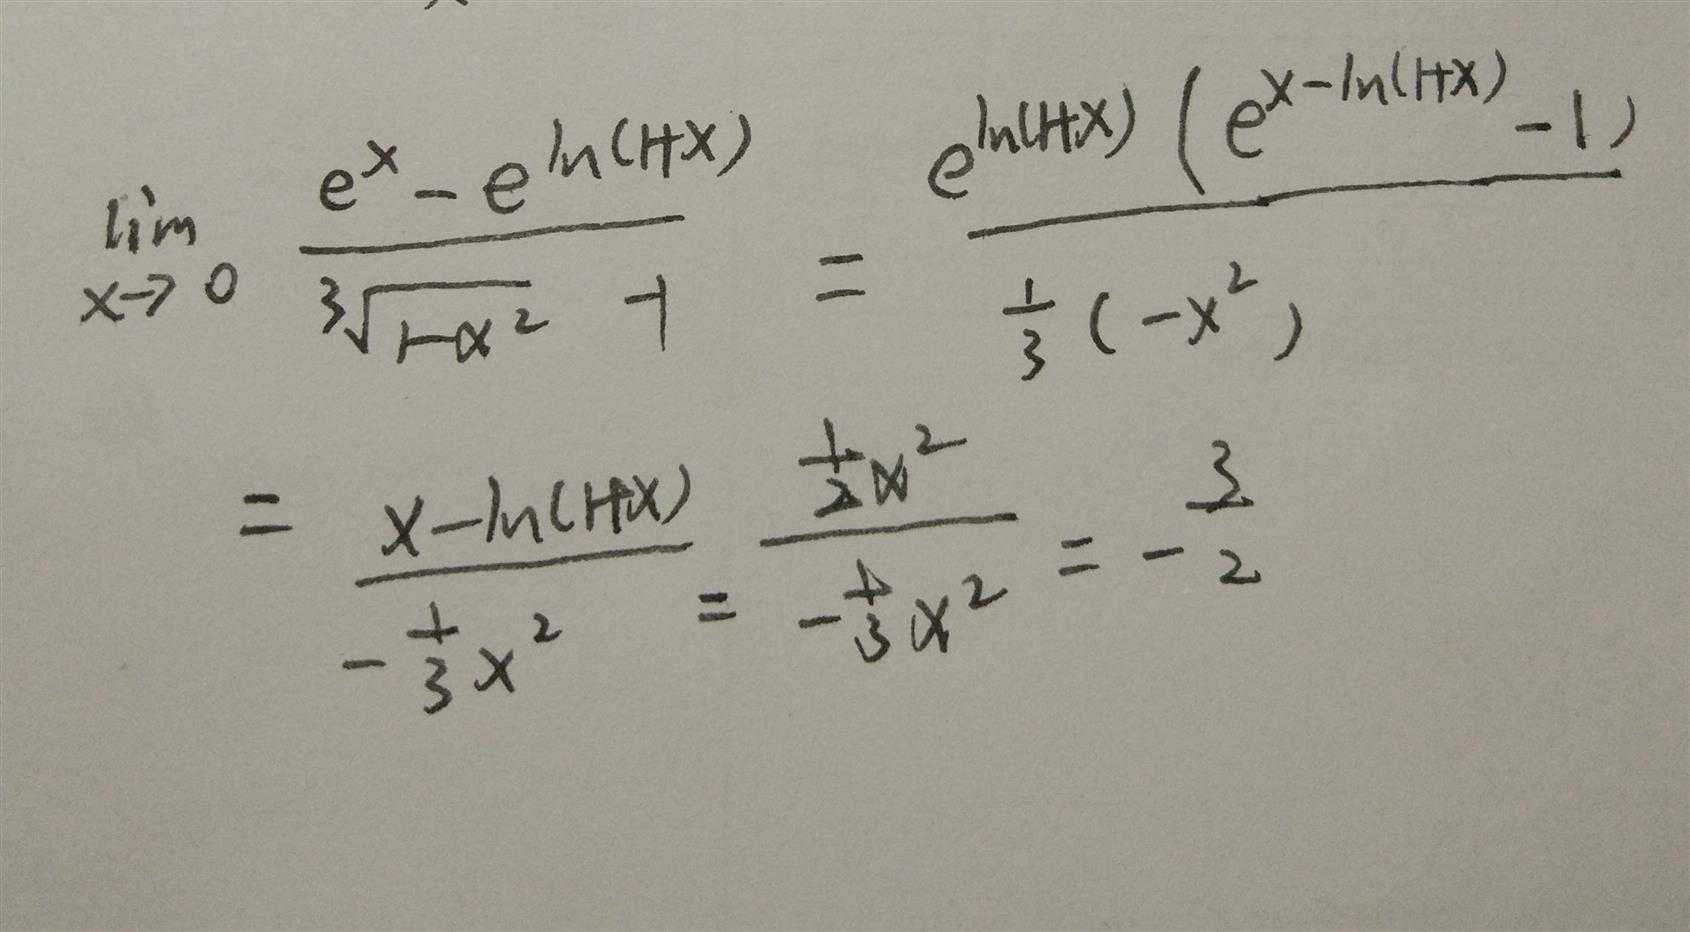 lim x→0 (e^x - e^ln(1+x)) / (∛(1-x²) - 1) = e^ln(1+x) (e^(x-ln(1+x)) - 1) / (1/3 (-x²))
= (x - ln(1+x)) / (-1/3 x²) = (1/2 x²) / (-1/3 x²) = - 3/2